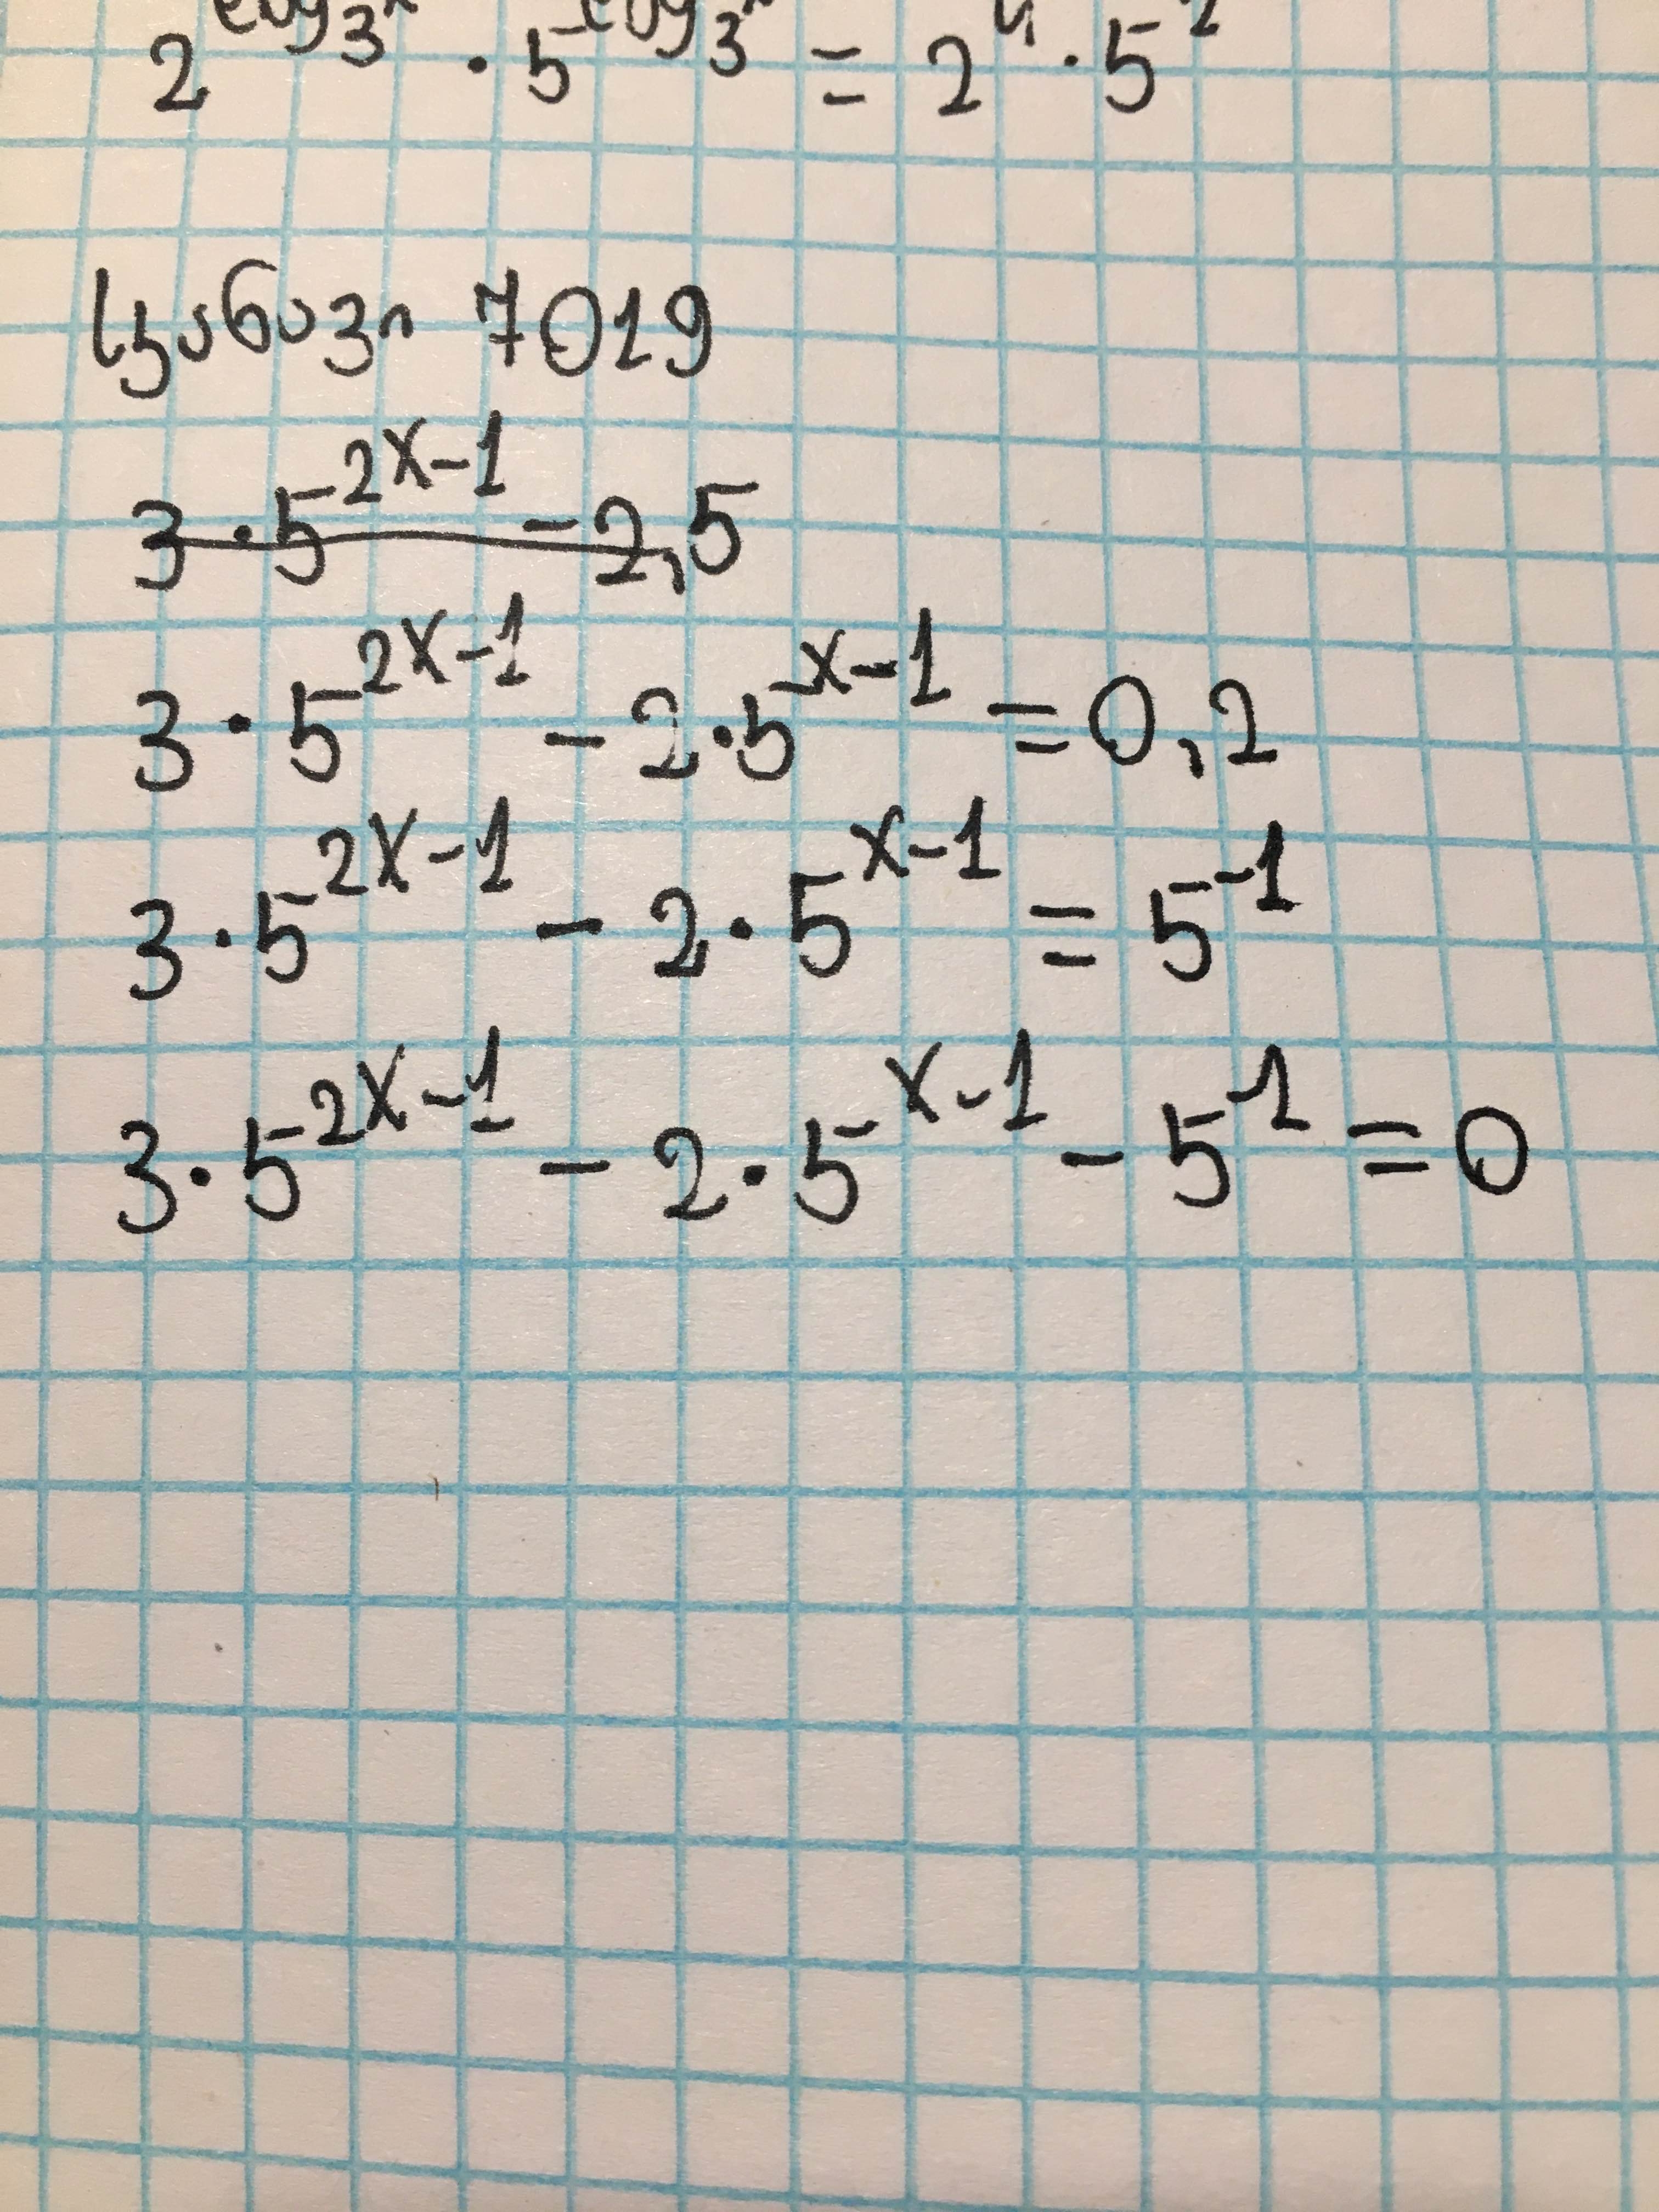 2^{log_3 x} · 5^{log_3 x} = 2^4 · 5^2
7019
3 · 5^{2x-1} - 2,5
3 · 5^{2x-1} - 2 · 5^{x-1} = 0,2
3 · 5^{2x-1} - 2 · 5^{x-1} = 5^{-1}
3 · 5^{2x-1} - 2 · 5^{x-1} - 5^{-1} = 0